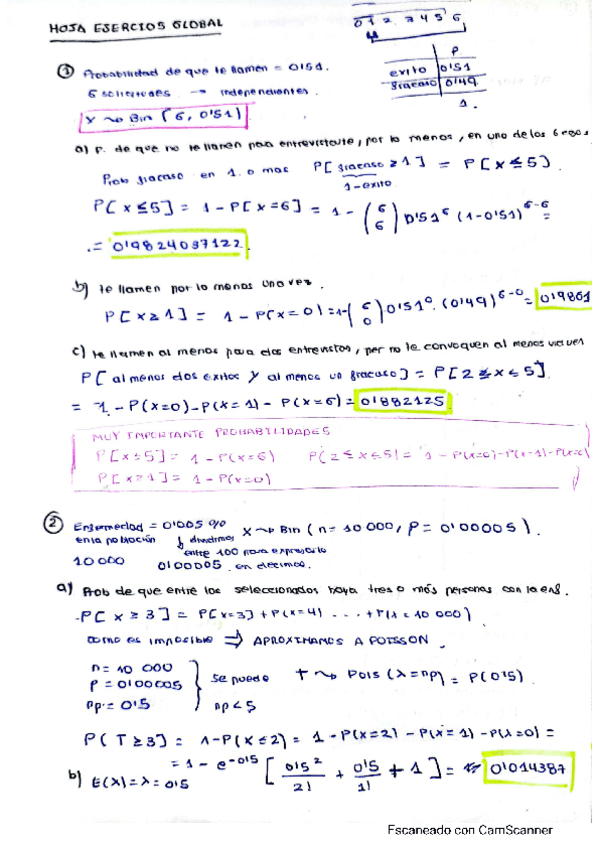 HOJA EJERCIOS GLOBAL
0 1 2 3 4 5 6
P
exito 0'51
fracaso 0'49
1.
① Probabilidad de que te llamen = 0'51.
6 solicitudes → independientes.
X ~ Bin (6, 0'51)
a) P. de que no te llamen para entrevistarte, por lo menos, en uno de los 6
Prob fracaso en 1 o mas P[fracaso ≥ 1] = P[x ≤ 5].
1-exito
P[x ≤ 5] = 1 - P[x = 6] = 1 - (6 6) 0'51⁶ (1-0'51)⁶⁻⁶ =
= 0'9824037122
b) te llamen por lo menos una vez.
P[x ≥ 1] = 1 - P(x = 0) = 1 - (6 0) 0'51⁰ · (0'49)⁶⁻⁰ = 0'9861
c) te llamen al menos para dos entrevistas, per no te convoquen al menos una vez
P[al menos dos exitos y al menos un fracaso] = P[2 ≤ x ≤ 5].
= 1 - P(x=0) - P(x=1) - P(x=6) = 0'882125
MUY IMPORTANTE PROBABILIDADES
P[x ≤ 5] = 1 - P(x=6) P(2 ≤ x ≤ 5) = 1 - P(x=0) - P(x=1) - P(x=6)
P[x ≥ 1] = 1 - P(x=0)
② Enfermedad = 0'005 % X ~ Bin (n = 10 000, P = 0'00005).
en la población ↳ dividimos
entre 100 para expresarlo
10 000 0'00005 en decimos.
a) Prob de que entre los seleccionados haya tres o más personas con la enf.
P[x ≥ 3] = P[x=3] + P(x=4) ... + P(x = 10 000)
como es imposible ⇒ APROXIMAMOS A POISSON.
n = 10 000
P = 0'00005 se puede T ~ Pois (λ = np) = P(0'5)
np = 0'5 np < 5
P(T ≥ 3) = 1 - P(x ≤ 2) = 1 - P(x=2) - P(x=1) - P(x=0) =
= 1 - e⁻⁰'⁵ [0'5²/2! + 0'5/1! + 1] = 0'014387
b) E(X) = λ = 0'5
Escaneado con CamScanner